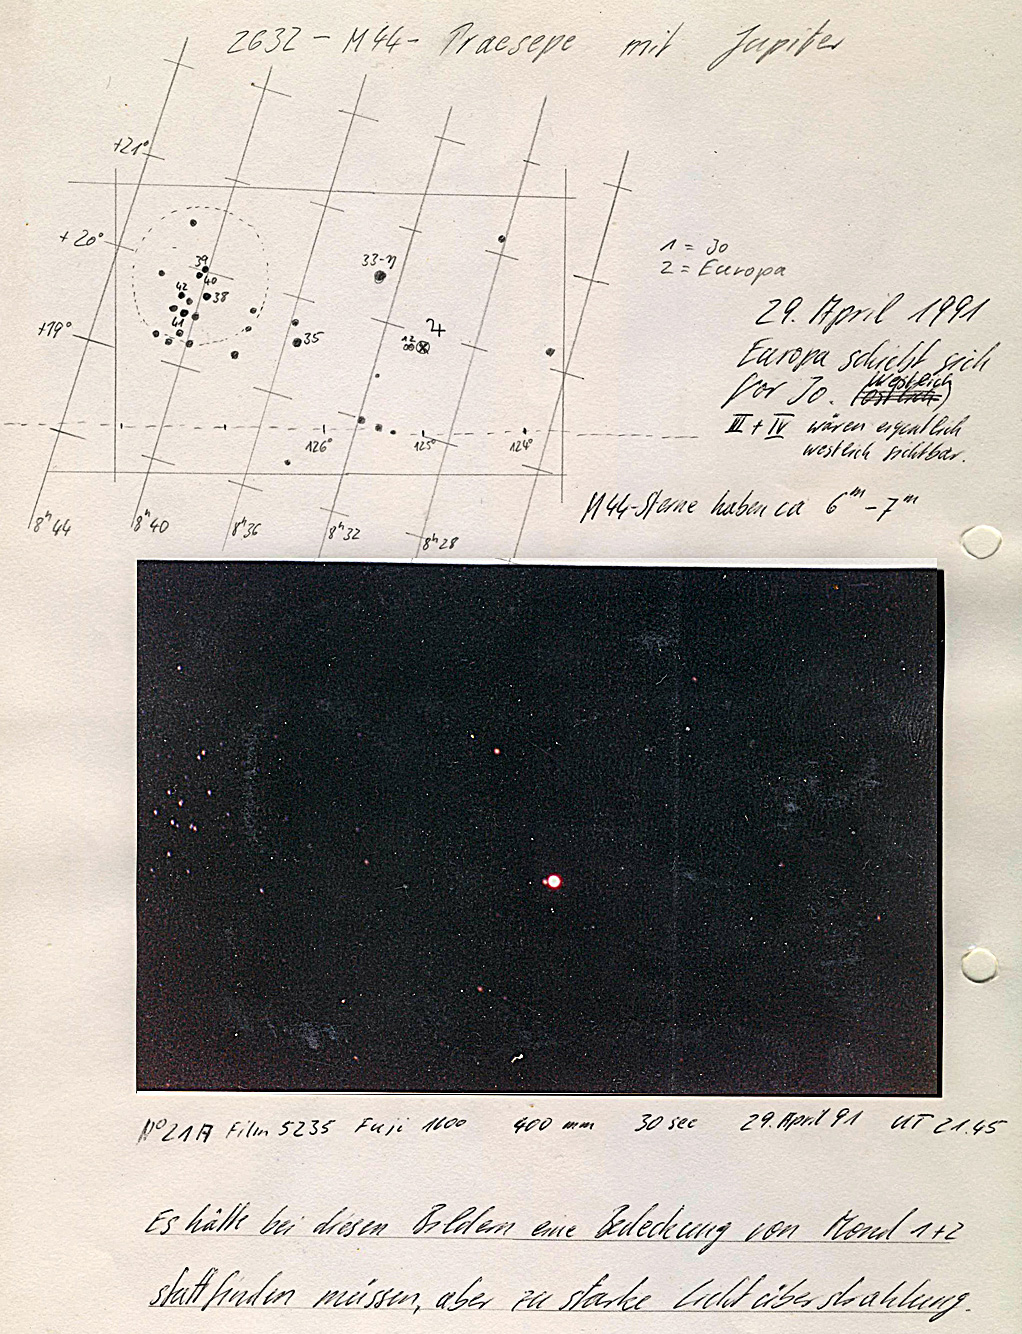 2632 - M44 - Praesepe mit Jupiter
+21°
+20°
+19°
39
40
42
38
41
33-η
35
12
♃
1 = Jo
2 = Europa
29. April 1991
Europa schiebt sich
vor Jo. (westlich)
III + IV wären eigentlich
westlich sichtbar.
126°
125°
124°
M44-Sterne haben ca 6ᵐ - 7ᵐ
8ʰ44
8ʰ40
8ʰ36
8ʰ32
8ʰ28
N°21A Film 5235 Fuji 1600 400 mm 30 sec 29. April 91 UT 21.45
Es hätte bei diesen Bildern eine Bedeckung von Mond 1+2
stattfinden müssen, aber zu starke Lichtüberstrahlung.